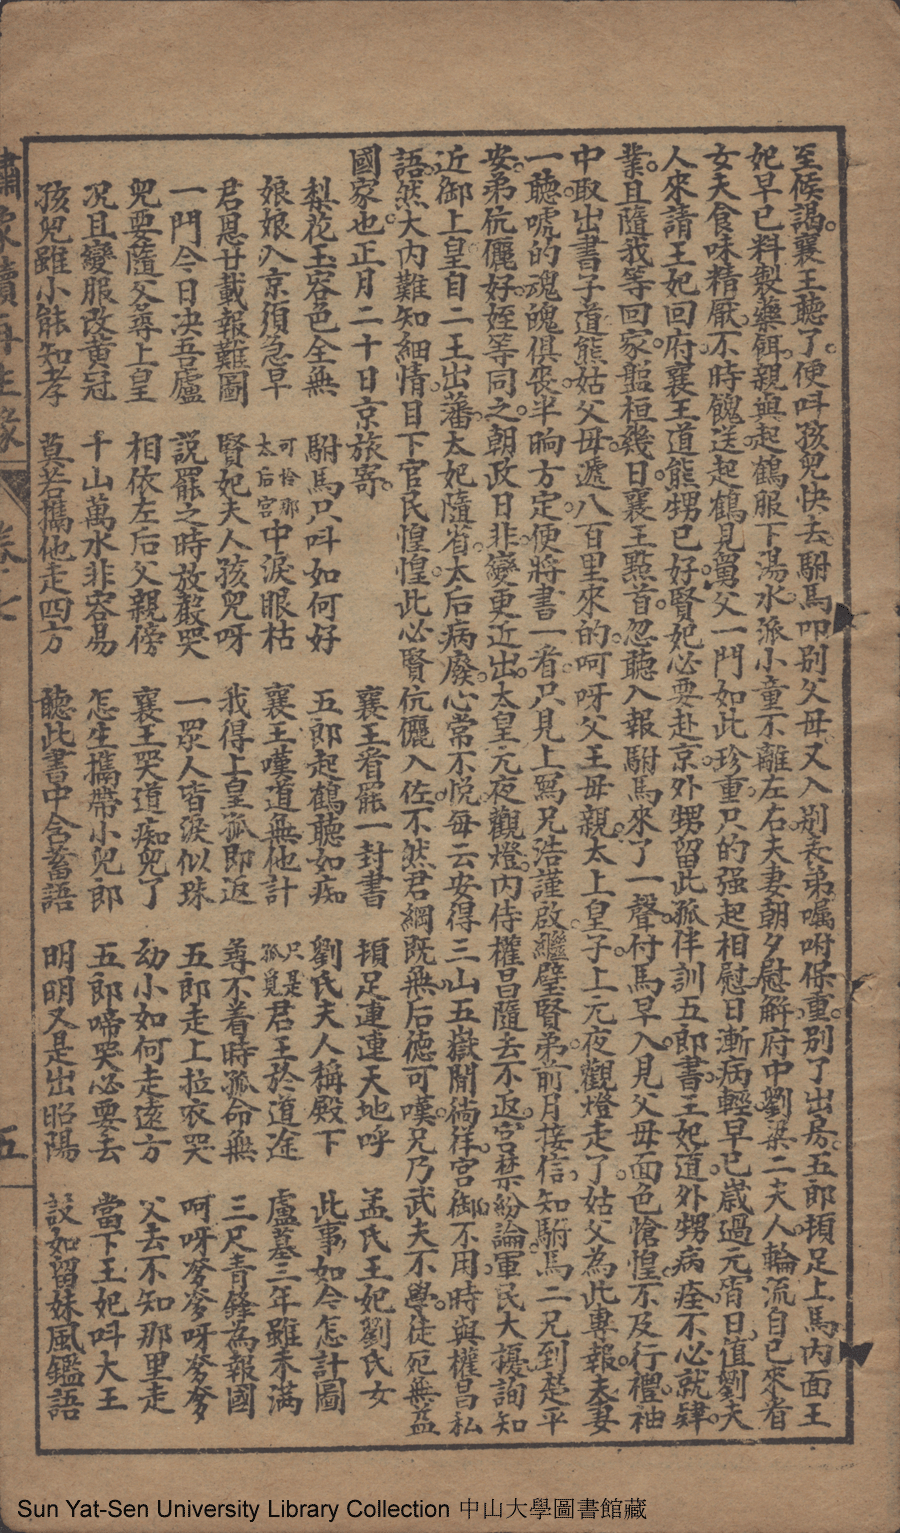 至候謁。襄王聽了。便呌孩兒快去駙馬叩别父母又入别表弟囑咐保重。别了出房。五郎頓足上馬内面王
妃早已料製藥餌。親與起鶴服下湯水。派小童不離左右夫妻朝夕慰解府中劉梁二夫人輪流自已來看
女夫食味精厭。不時餽送起鶴見舅父一門如此珍重。只的强起相慰日漸病輕早已歲過元宵日。值劉夫
人來請王妃回府。襄王道熊甥已好。賢妃必要赴京。外甥留此孤伴訓五郎書。王妃道外甥病痊不必就肄
業。且隨我等回家。盤桓幾日。襄王點首。忽聽入報駙馬來了一聲。付馬早入見父母面色愴惶。不及行禮。袖
中取出書子道熊姑父毋遞八百里來的。呵呀父王毋親。太上皇子上元夜觀燈走了。姑父為此專報。夫妻
一聽唬的魂魄俱喪。半晌方定。便將書一看。只見上寫兄浩謹啟繼璧賢弟。前月接信。知駙馬二兄到楚平
安。弟伉儷好。姪等同之。朝政日非。變更近出。太皇元夜觀燈。内侍權昌隨去不返。宫禁紛論。軍民大擾。詢知
近御上皇自二王出藩。太妃隨省。太后病廢。心常不悦。每云安得三山五嶽閒徜徉。宫御不用。時與權昌私
語。然大内難知細情。目下官民惶惶。此必賢伉儷入佐。不然君綱既無。后德可嘆。兄乃武夫不學。徒死無益
國家也。正月二十日京旅寄。
襄王看罷一封書　頓足連連天地呼　孟氏王妃劉氏女
梨花玉容色全無　駙馬只呌如何好　五郎起鶴聽如痴　劉氏夫人稱殿下　此事如今怎計圖
娘娘入京須急早　可怜那太后宫中淚眼枯　襄王嘆道無他計　只是孤覓君王於道途　盧墓三年雖未滿
君恩廿載報難圖　賢妃夫人孩兒呀　我得上皇孤即返　尋不着時孤命無　三尺青鋒為報國
一門今日决吾廬　説罷之時放聲哭　一眾人皆淚似珠　五郎走上拉衣哭　呵呀爹爹呀爹爹
兒要隨父尋上皇　相依左右父親傍　襄王哭道痴兒了　幼小如何走遠方　父去不知那里走
况且變服改黄冠　千山萬水非容易　怎生攜帶小兒郎　五郎啼哭必要去　當下王妃呌大王
孩兒雖小能知孝　莫若攜他走四方　聽此書中含蓄語　明明又是出昭陽　設如留妹風鑑語
繡象續再生緣　卷十七　五
Sun Yat-Sen University Library Collection 中山大學圖書館藏